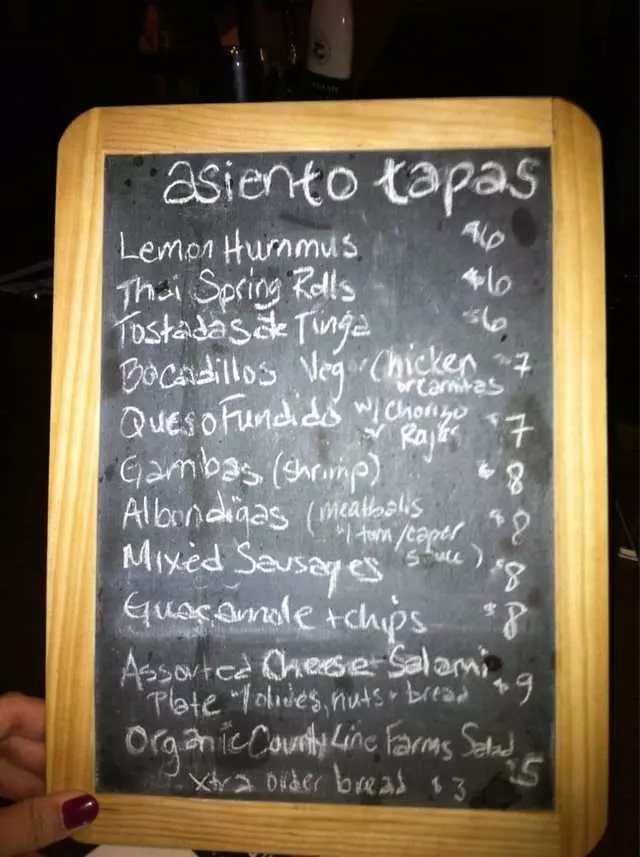 asiento tapas
Lemon Hummus $6
Thai Spring Rolls $6
Tostadas de Tinga $6
Bocadillos Veg or Chicken $7
or Carnitas
Queso Fundido w/ Chorizo
Rajas $7
Gambas (shrimp) $8
Albondigas (meatballs $8
w/ tom/caper
Mixed Sausages sauce) $8
Guacamole + chips $8
Assorted Cheese + Salami
Plate w/ olives, nuts + bread $9
Organic County Line Farms Salad
xtra order bread $3 $5